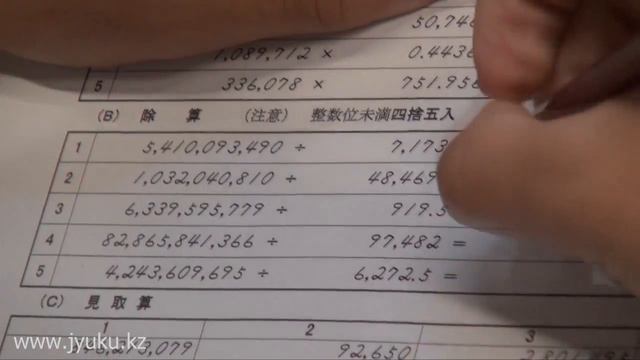 50,746
1,089,712 × 0.4436
5 336,078 × 751.956
(B) 除算 (注意) 整数位未満四捨五入
1 5,410,093,490 ÷ 7,173
2 1,032,040,810 ÷ 48,469
3 6,339,595,779 ÷ 919.5
4 82,865,841,366 ÷ 97,482 =
5 4,243,609,695 ÷ 6,272.5 =
(C) 見取算
1 2 3
92,650
www.jyuku.kz